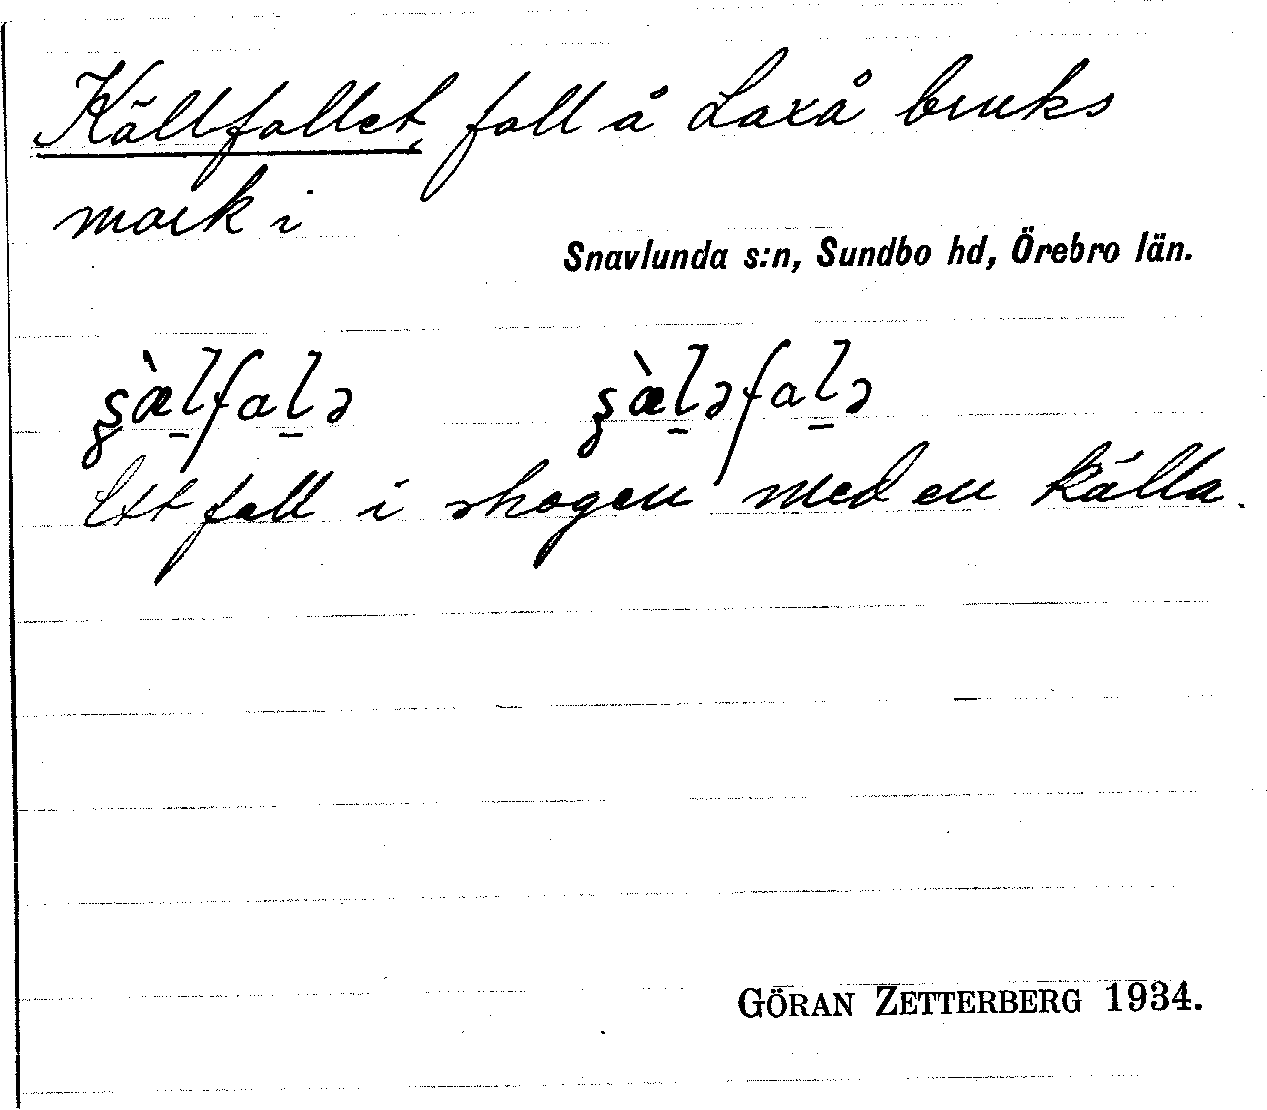 Källfallet, fall å Laxå bruks
mark i
Snavlunda s:n, Sundbo hd, Örebro län.
ʂæ̀l̠fal̠ə ʂæ̀l̠əfal̠ə
Ett fall i skogen med en källa.
GÖRAN ZETTERBERG 1934.